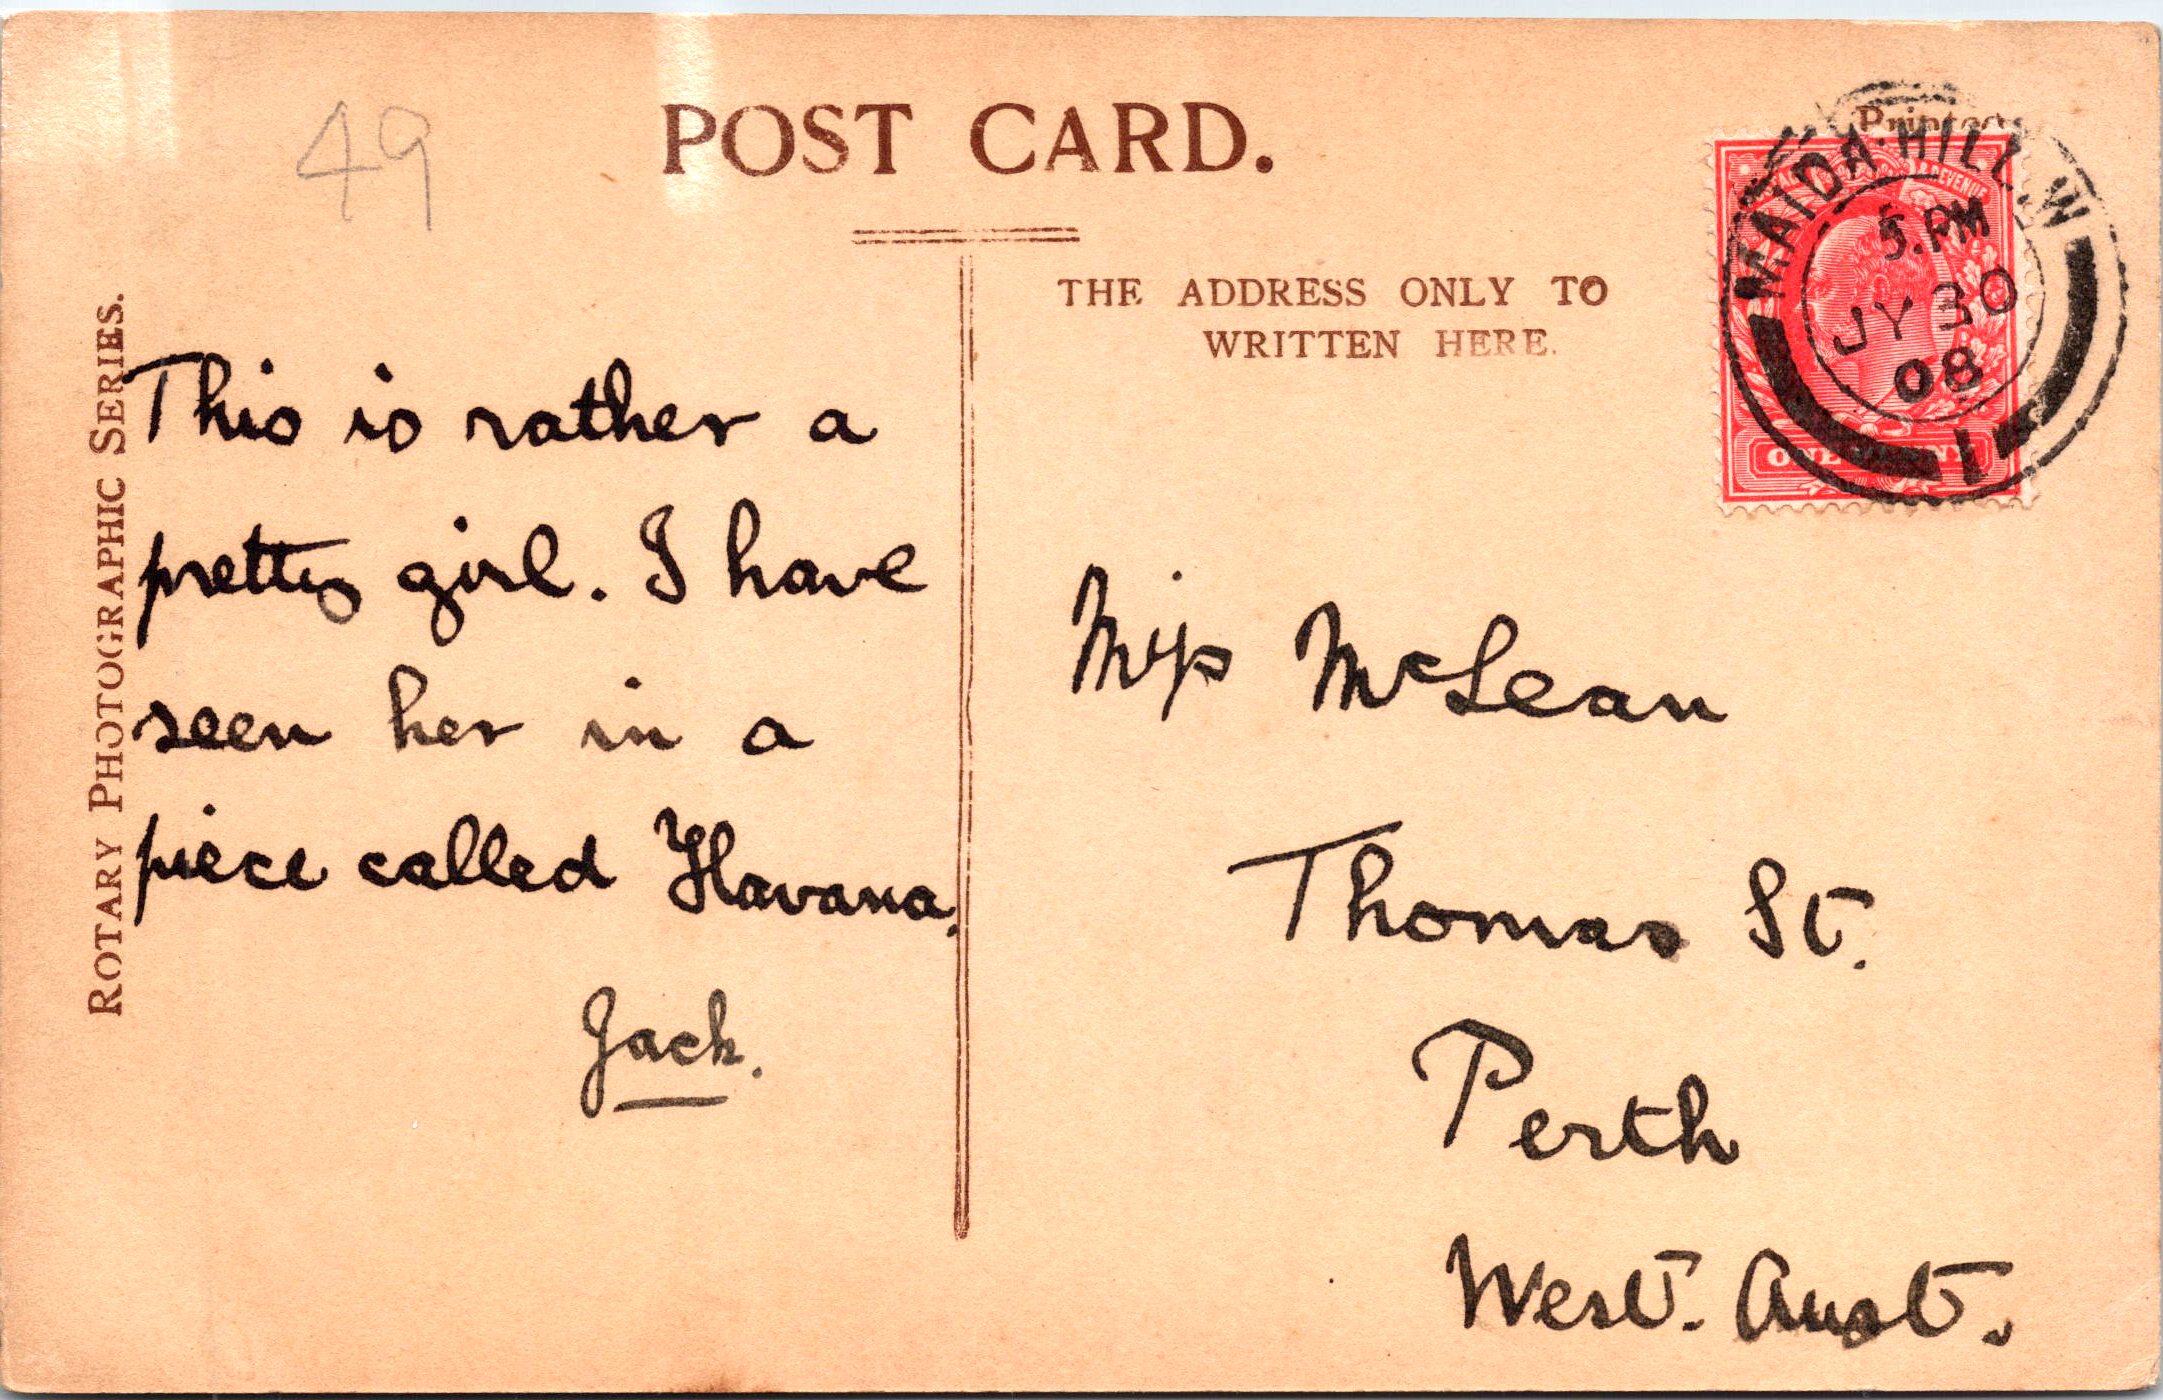 49
POST CARD.
THE ADDRESS ONLY TO
WRITTEN HERE.
ROTARY PHOTOGRAPHIC SERIES.
This is rather a
pretty girl. I have
seen her in a
piece called Havana.
Jack.
MAIDA·HILL.W
5.PM
JY 30
08
1
ONE PENNY
REVENUE
Miss McLean
Thomas St.
Perth
West. Aust.